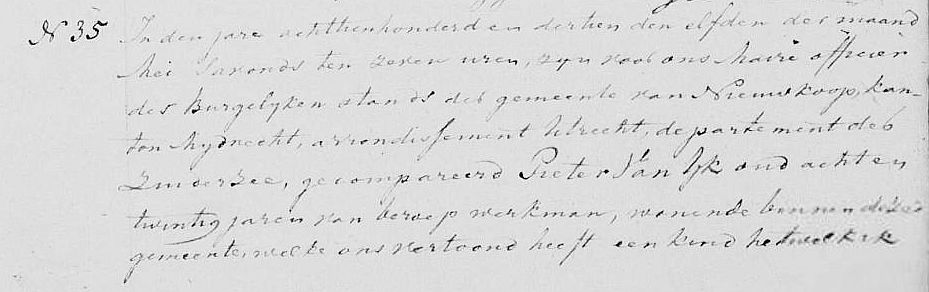 N 35 In den jare achttienhonderd en dertien den elfden der maand
Mei savonds ten zeven uren, zyn voor ons Maire officier
des Burgelyken stands der gemeente van Nieuwkoop, kan-
ton Mydrecht, arrondissement Utrecht, departement der
Zuiderzee, gecompareerd Pieter Van Yk oud acht en
twintig jaren van beroep werkman, wonende binnen deze
gemeente, welke ons vertoond heeft een kind hetwelk